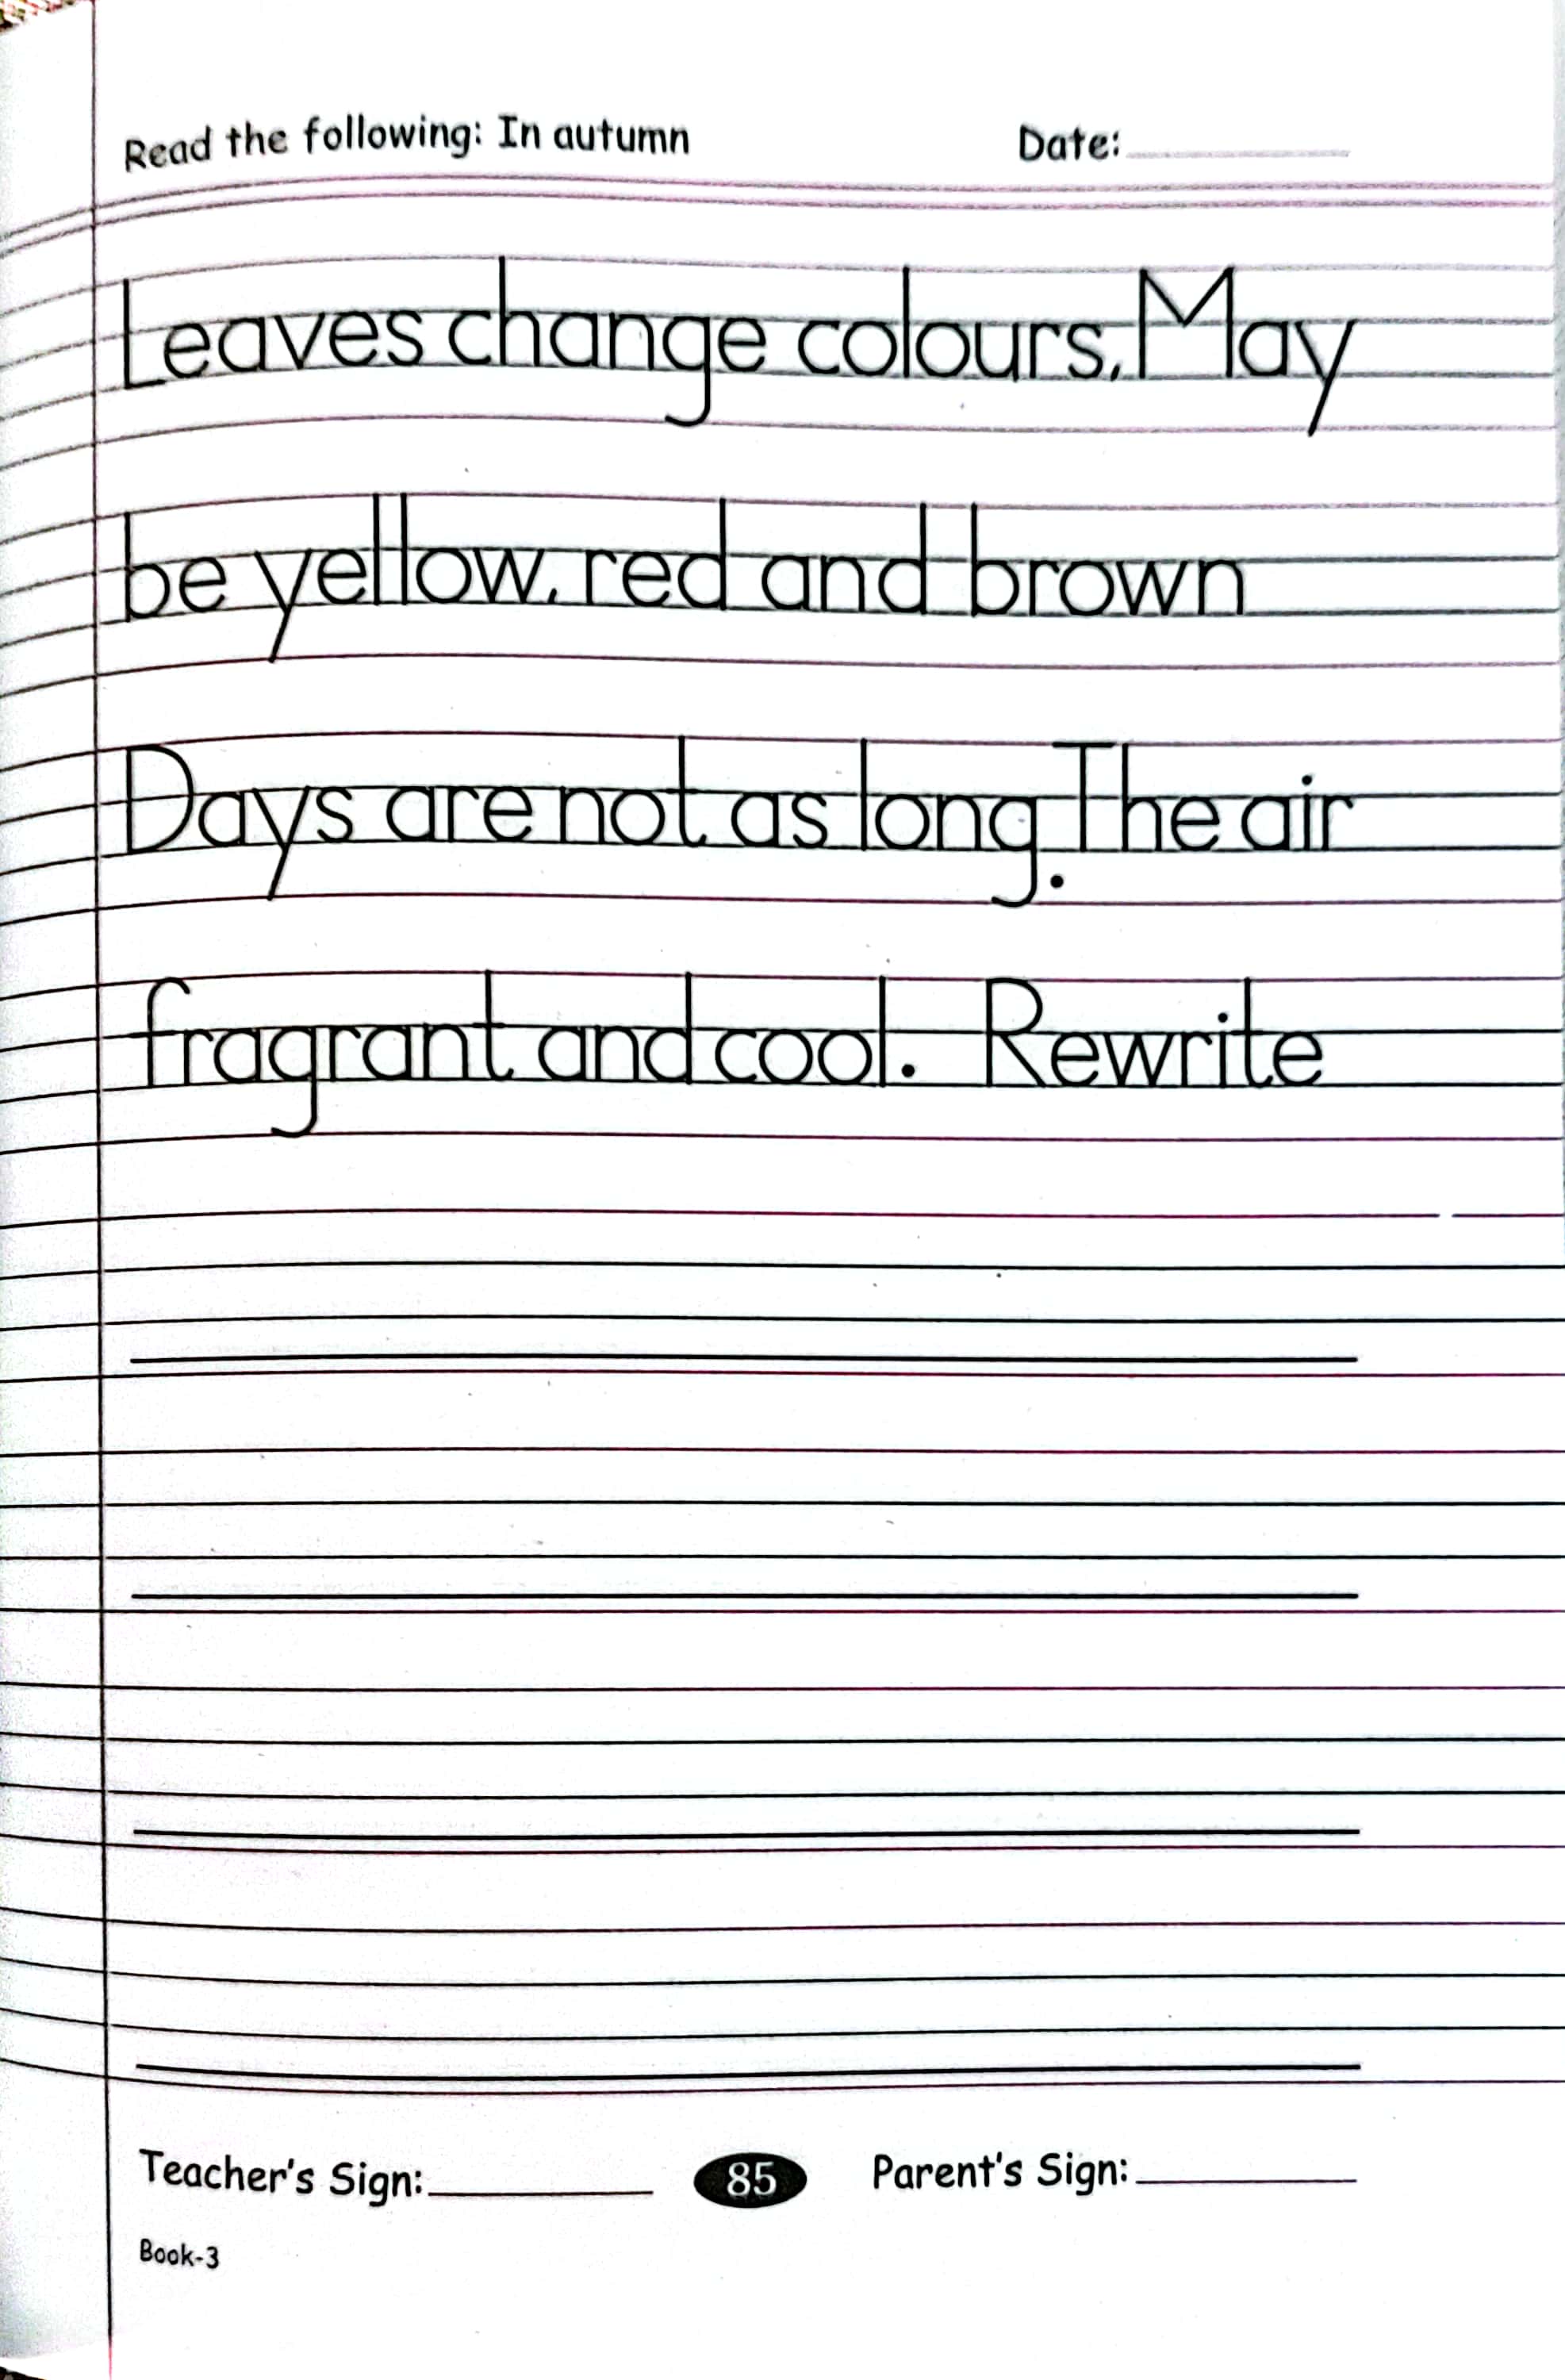 Read the following: In autumn Date:
Leaves change colours, May
be yellow, red and brown
Days are not as long. The air
fragrant and cool. Rewrite
Teacher's Sign: 85 Parent's Sign:
Book-3